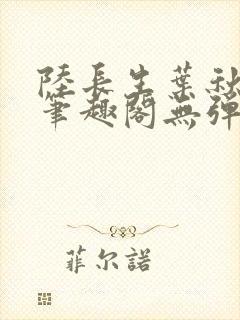 陸長生葉秋
筆趣閣無彈
菲尔諾